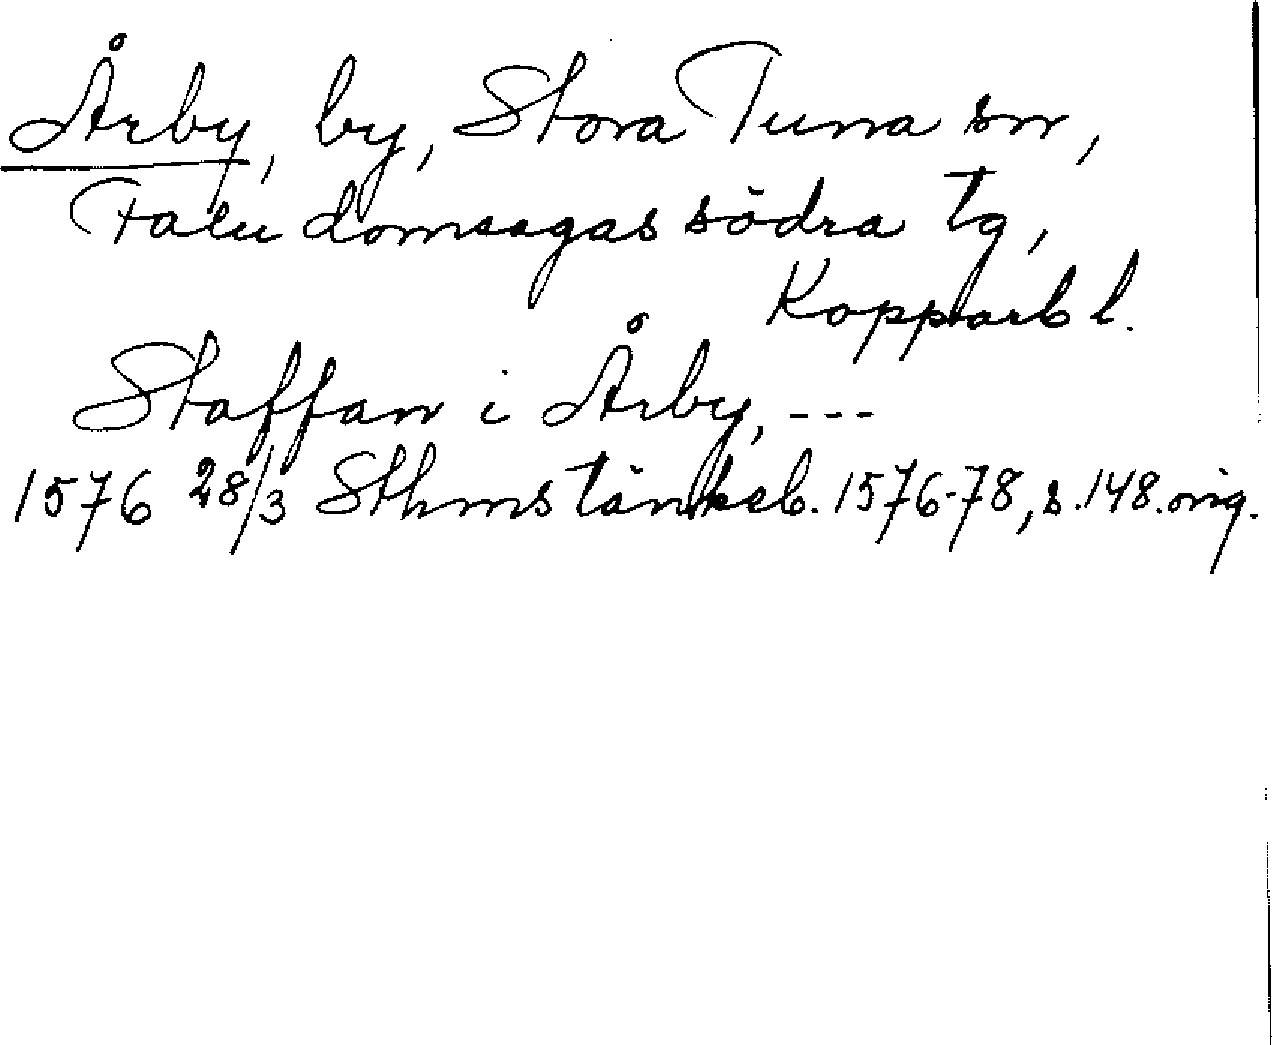 Årby, by, Stora Tuna sn,
Falu domsagas södra tg,
Kopparb l.
Staffan i Årby, ---
1576 28/3 Sthms tänkeb. 1576-78, s. 148. orig.